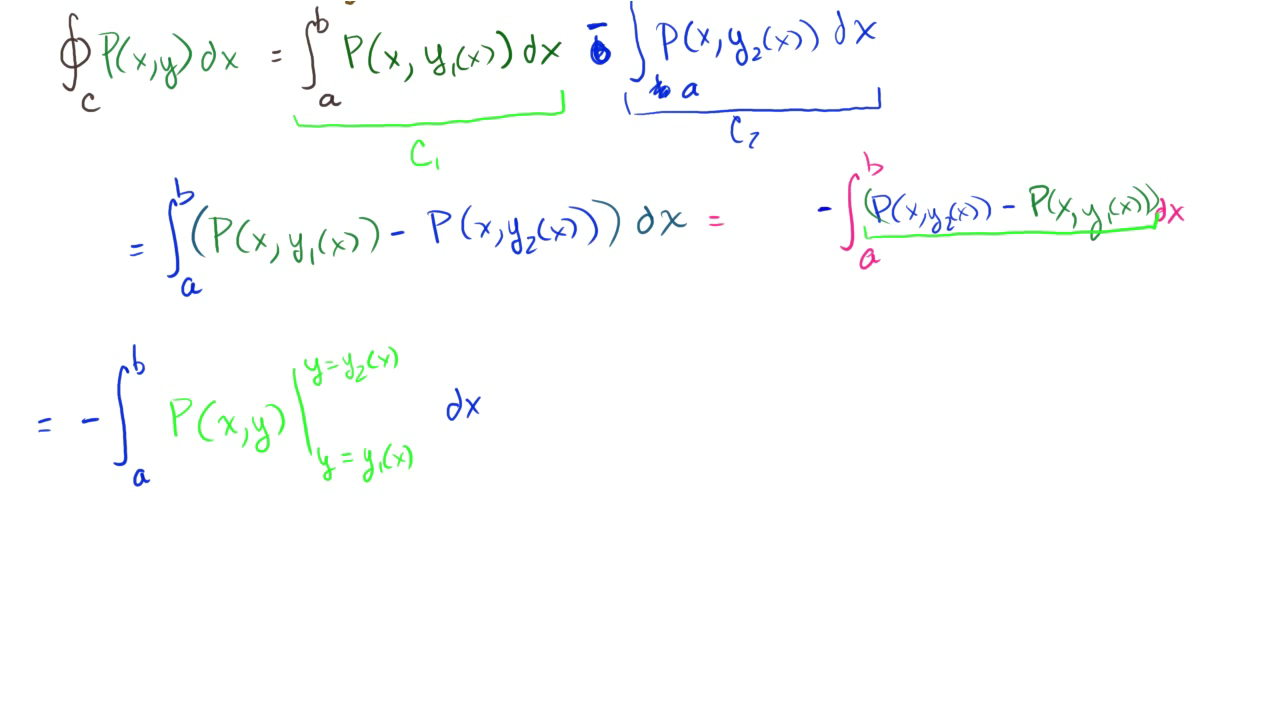 ∮_C P(x,y)dx = ∫_a^b P(x, y₁(x))dx - ∫_a P(x, y₂(x)) dx
C₁ C₂
= ∫_a^b (P(x, y₁(x)) - P(x, y₂(x))) dx = - ∫_a^b (P(x, y₂(x)) - P(x, y₁(x))) dx
= - ∫_a^b P(x,y) |_{y = y₁(x)}^{y = y₂(x)} dx